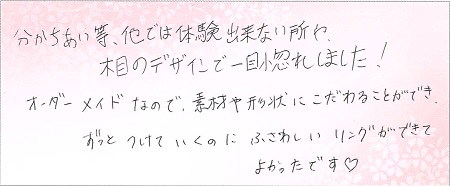 分かちあい等、他では体験出来ない所や、
木目のデザインで一目惚れしました!
オーダーメイドなので、素材や形状にこだわることができ、
ずっとつけていくのにふさわしいリングができて
よかったです♡